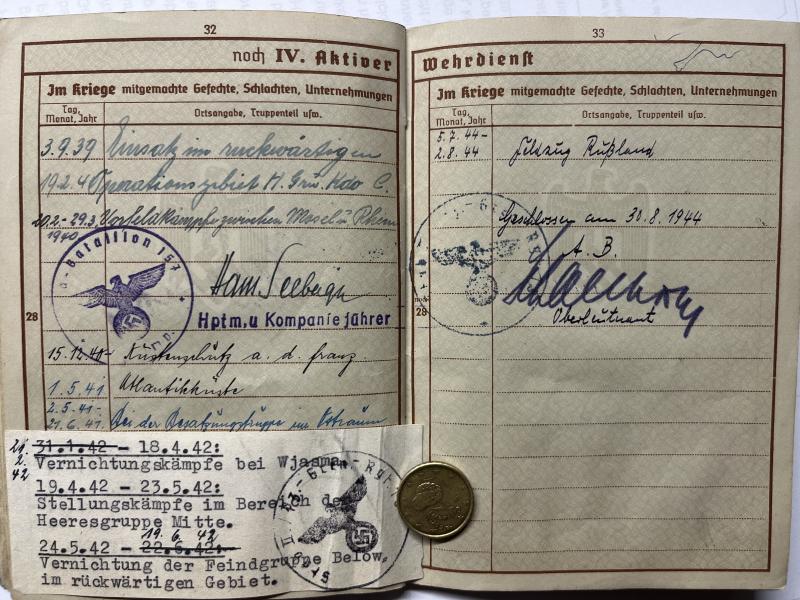 32
noch IV. Aktiver
Im Kriege mitgemachte Gefechte, Schlachten, Unternehmungen
Tag, Monat, Jahr
Ortsangabe, Truppenteil usw.
3.9.39 Einsatz im rückwärtigen
19.2.40 Operationsgebiet H. Gru. Kdo C.
20.2.-29.3. Vorfeldkämpfe zwischen Mosel u. Rhein
1940
-Bataillon 157
Hptm. u Kompanieführer
28
15.12.40- Küstenschutz a. d. franz
1.5.41 Atlantikküste
2.5.41- Bei der Besatzungstruppe im Ostraum
21.6.41.
21. 31.1.42 - 18.4.42:
2. Vernichtungskämpfe bei Wjasma.
42
19.4.42 - 23.5.42:
Stellungskämpfe im Bereich der
Heeresgruppe Mitte.
19.6.42
24.5.42 - 22.6.42:
Vernichtung der Feindgruppe Below,
im rückwärtigen Gebiet.
33
Wehrdienst
Im Kriege mitgemachte Gefechte, Schlachten, Unternehmungen
Tag, Monat, Jahr
Ortsangabe, Truppenteil usw.
5.7.44- Feldzug Rußland
2.8.44
Geschlossen am 30.8.1944
A. B.
Oberleutnant
28